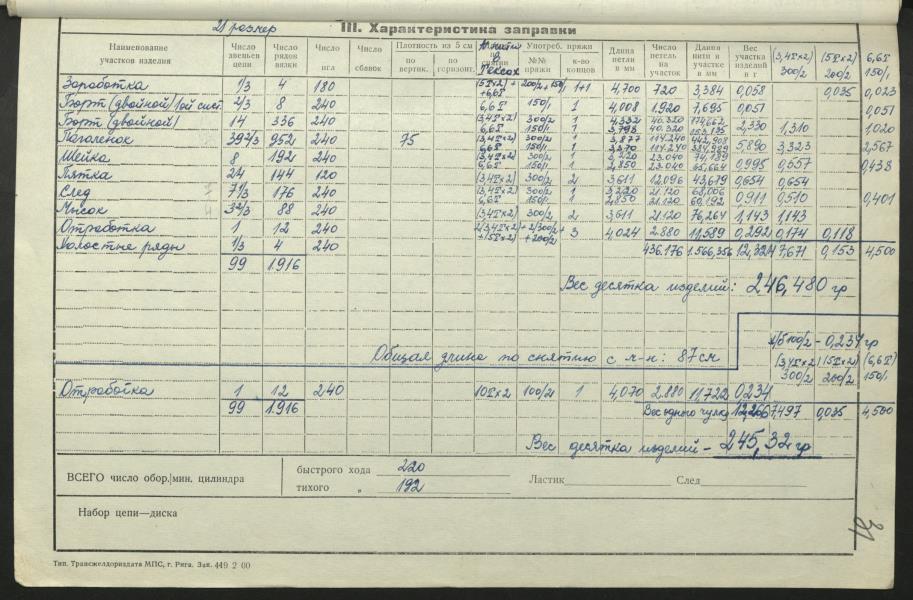 21 размер
III. Характеристика заправки
Наименование участков изделия | Число звеньев цепи | Число рядов вязки | Число игл | Число сбавок | Плотность из 5 см по вертик. | по горизонт. | Употреб. пряжи №№ пряжи | к-во концов | Длина петли в мм | Число петель на участок | Длина нити в участке в мм | Вес участка изделия в г | (3,4т×2) 300/2 | (15т×2) 200/2 | 6,6т 150/1
Заработка 1/3 4 180 1+1 4,700 720 3,384 0,058 0,035 0,023
Борт (двойной) 2/3 8 240 6,6т 150/1 1 4,008 1.920 7,695 0,051 0,051
Борт (двойной) 14 336 240 (3,4т×2) 300/2 1 4,332 40.320 174,662 2,330 1,310 1.020
6,6т 150/1 1 3,793 40.320
Паголенок 39 2/3 952 240 75 (3,4т×2) 300/2 1 3,877 114.240 442,908 5,890 3,323 2,567
6,6т 150/1 1 3,370 114.240
Шейка 8 192 240 (3,4т×2) 300/2 1 3,220 23.040 74,189 0,995 0,557 0,438
6,6т 150/1 1 2,850 23.040 65,664
Пятка 24 144 120 (3,4т×2) 300/2 2 3,611 12,096 43,679 0,654 0,654
След 7 1/3 176 240 (3,4т×2) 300/2 1 3,220 21.120 68,006 0,911 0,510 0,401
6,6т 150/1 1 2,850 21.120 60,192
Мысок 3 2/3 88 240 (3,4т×2) 300/2 2 3,611 21.120 76,264 1,143 1,143
Отработка 1 12 240 2(3,4т×2)+ 2/300/2+ 3 4,024 2.880 11,589 0,292 0,174 0,118
+(15т×2) +200/2
Холостые ряды 1/3 4 240 436.176 1.566,356 12,324 7,671 0,153 4,500
99 1.916
Вес десятка изделий: 246,480 гр
х/б 100/2 - 0,234 гр
Общая длина по снятию с м-н: 87 см
(3,4т×2) (15т×2) (6,6т)
300/2 200/2 150/1
Отработка 1 12 240 10т×2 100/2 1 4,070 2.880 11,722 0,234
99 1.916 Вес одного чулка 7,497 0,035 4,500
Вес десятка изделий - 245,32 гр
ВСЕГО число обор./мин. цилиндра быстрого хода 220
тихого „ 192 Ластик След
Набор цепи—диска
Тип. Трансжелдориздата МПС, г. Рига. Зак. 449 2 00